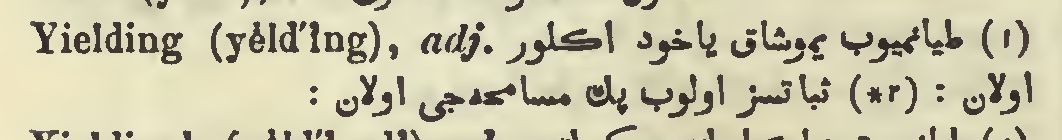 Yielding (yėld′ĭng), adj. (١) طيانميوب يموشاق ياخود اكلور
اولان : (٢*) ثباتسز اولوب پك مسامحه‌جی اولان :